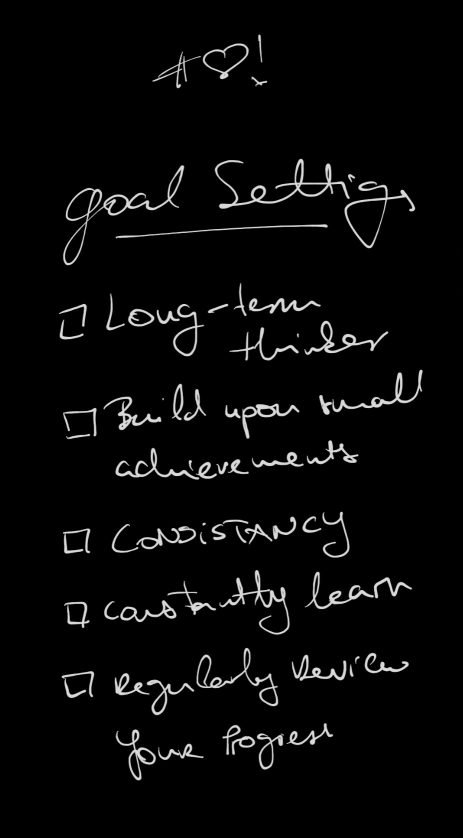 #♡!
Goal Settig,
☐ Long-term
thinker
☐ Build upon small
achievements
☐ CONSISTANCY
☐ Constantly learn
☐ Regularly Review
Your Progress